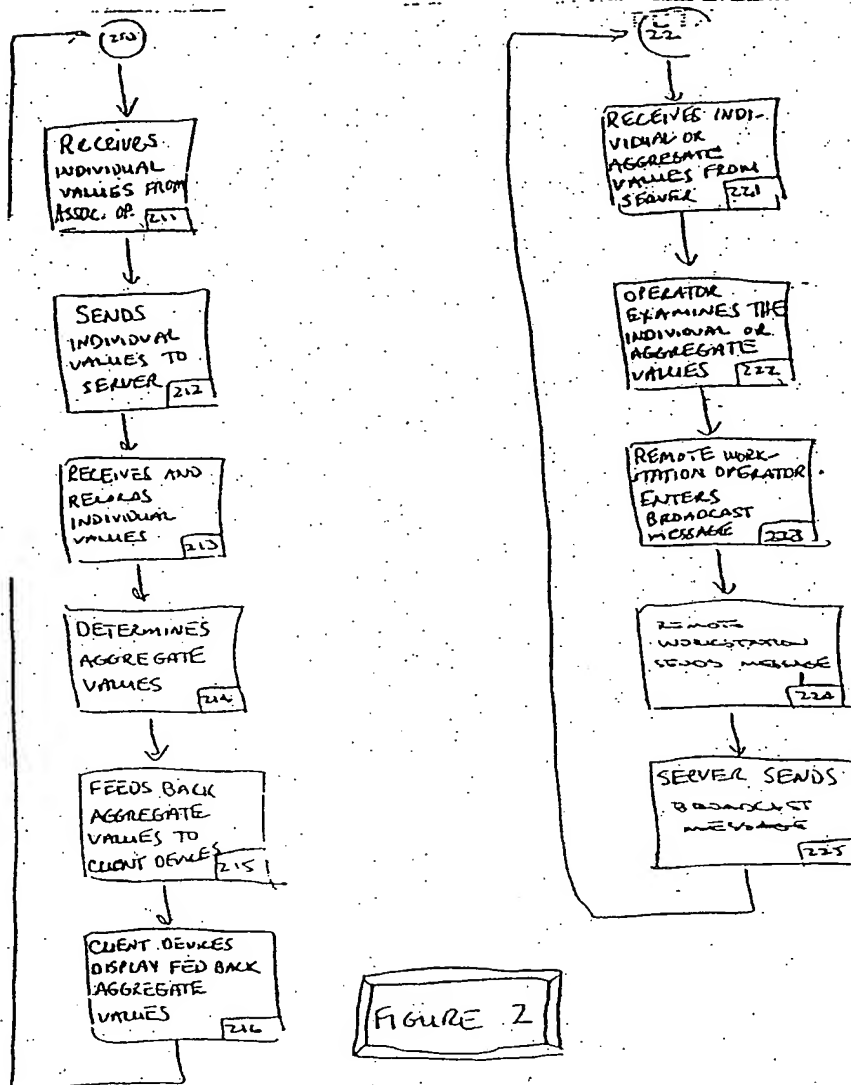 RECEIVES
INDIVIDUAL
VALUES FROM
ASSOC. OP.
211
SENDS
INDIVIDUAL
VALUES TO
SERVER
212
RECEIVES AND
RECORDS
INDIVIDUAL
VALUES
213
DETERMINES
AGGREGATE
VALUES
214
FEEDS BACK
AGGREGATE
VALUES TO
CLIENT DEVICES
215
CLIENT DEVICES
DISPLAY FED BACK
AGGREGATE
VALUES
216
RECEIVES INDI-
VIDUAL OR
AGGREGATE
VALUES FROM
SERVER
221
OPERATOR
EXAMINES THE
INDIVIDUAL OR
AGGREGATE
VALUES
222
REMOTE WORK-
STATION OPERATOR
ENTERS
BROADCAST
MESSAGE
223
REMOTE
WORKSTATION
SENDS MESSAGE
224
SERVER SENDS
BROADCAST
MESSAGE
225
FIGURE 2